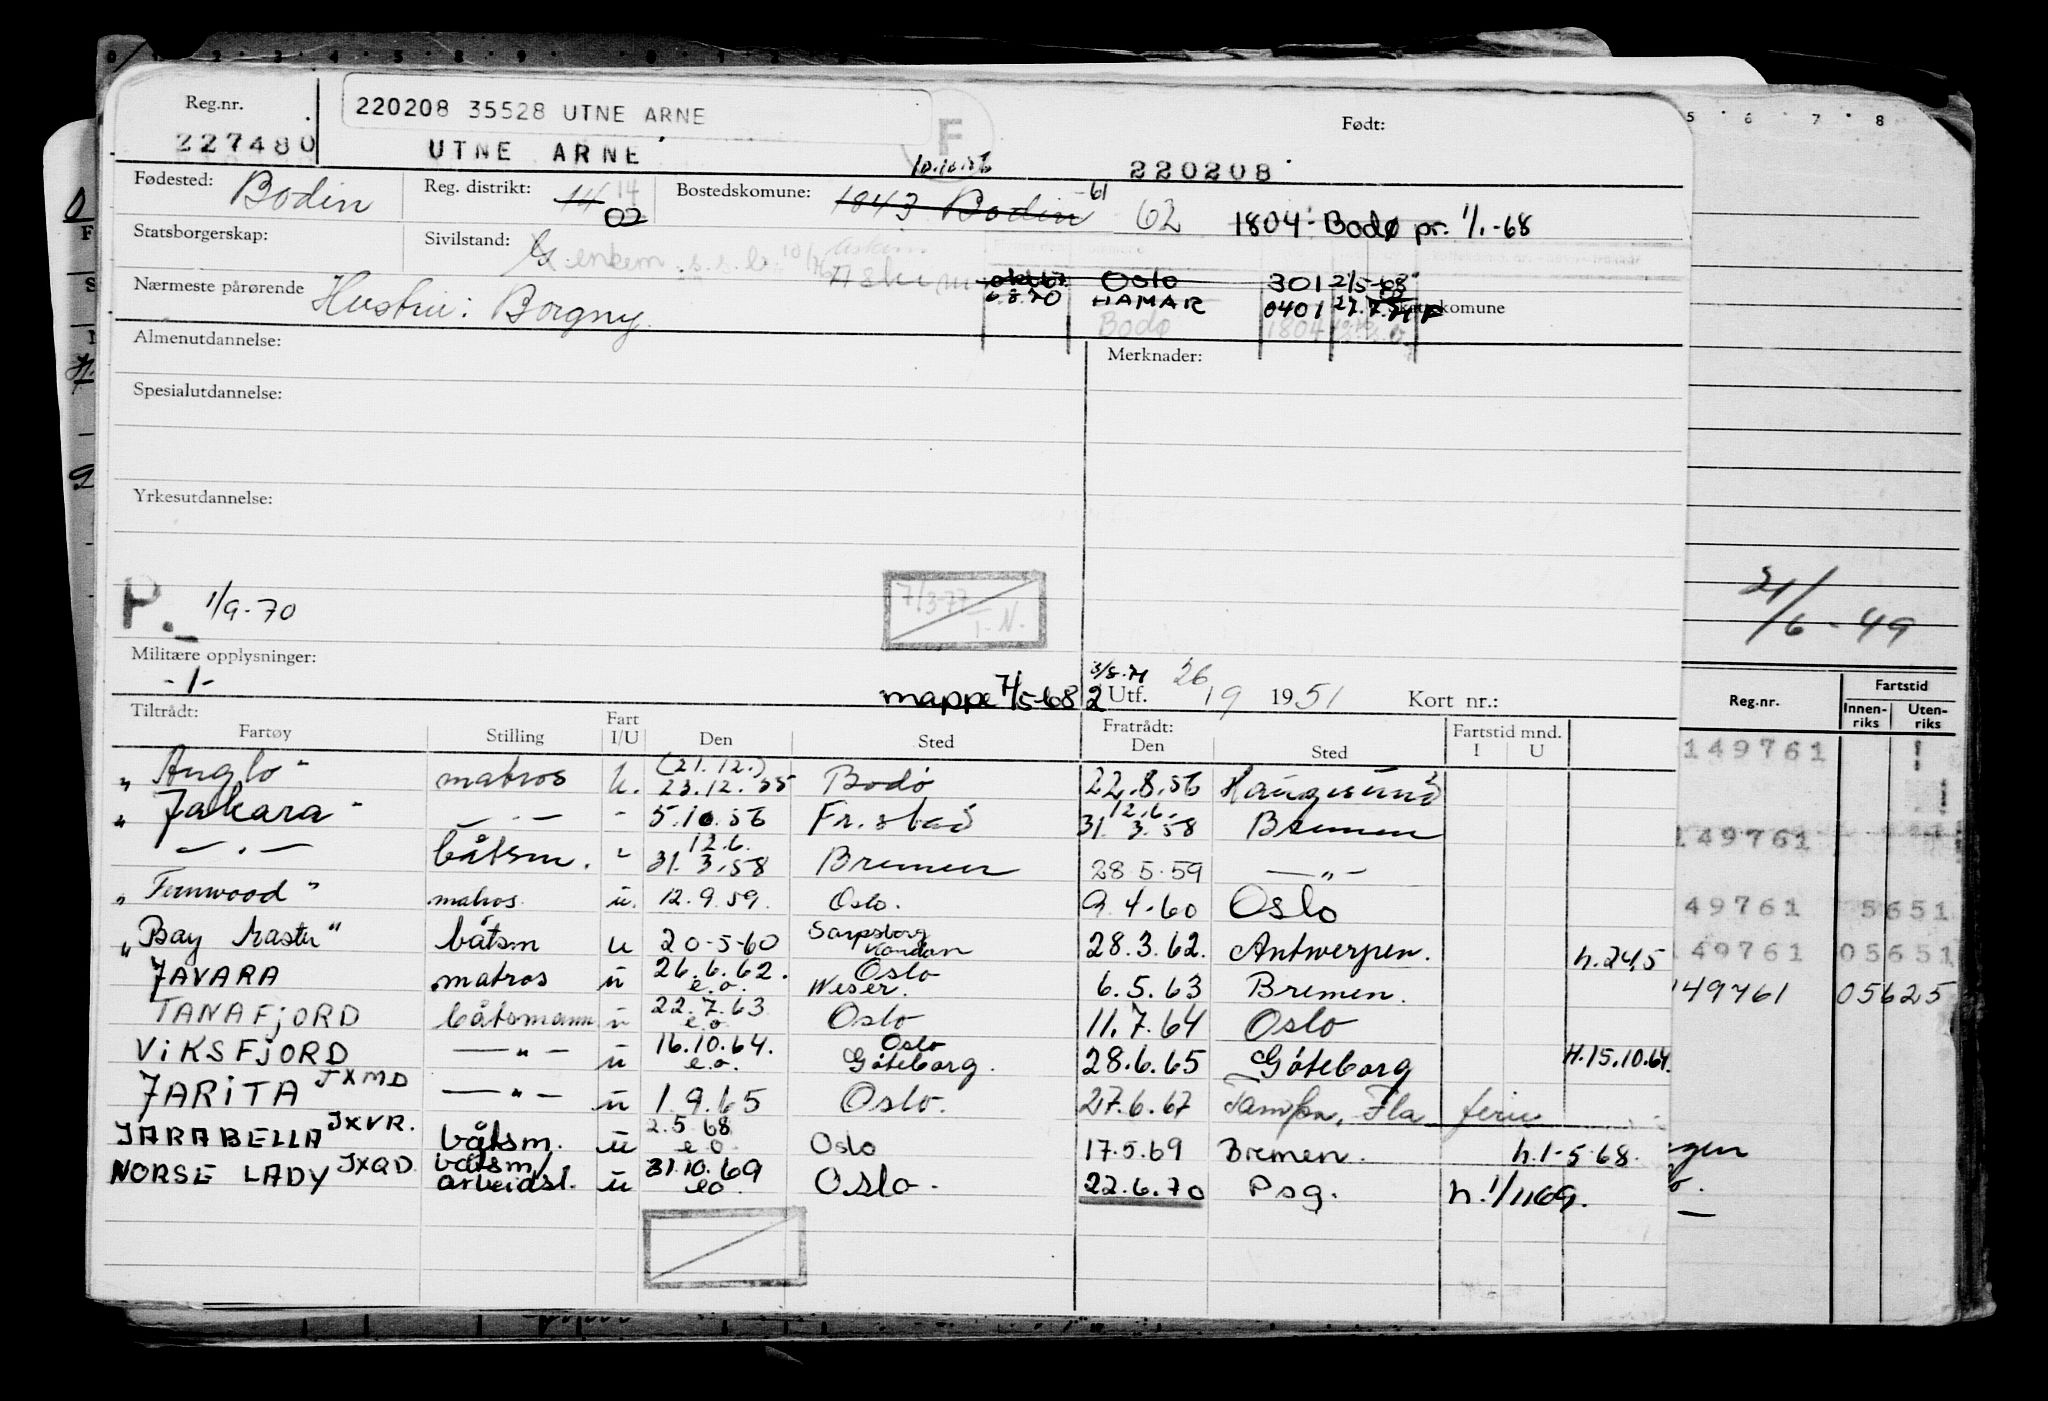 Reg.nr.
227480
220208 35528 UTNE ARNE
UTNE ARNE
F
Født:
220208
Fødested: Bodin
Reg. distrikt: 14 14 02
Bostedskomune: 1843 Bodin -61 62 1804 - Bodø pr. 1/1.-68
Statsborgerskap:
Sivilstand: G enkem. s.s.b. 10/76 Askim
Oslo 301 2/5-68
6.8.70 HAMAR 0401 27.7.71 F
Bodø 1804
Nærmeste pårørende Hustru: Borgny
Skattekomune
Almenutdannelse:
Merknader:
Spesialutdannelse:
Yrkesutdannelse:
7/3-77
P. 1/9-70
T.N.
21/6-49
Militære opplysninger:
-1-
mappe 7/5-68 2
3/8.71
Utf. 26/9 1951 Kort nr.:
Tiltrådt:
Fartøy Stilling Fart I/U Den Sted Fratrådt: Den Sted Fartstid mnd. I U
Reg.nr. Fartstid Innen-riks Uten-riks
"Anglo" matros u. (21.12.) 23.12.55 Bodø 22.8.56 Haugesund
"Jakara" — . — - 5.10.56 Fr.stad 12.6. 31.3.58 Bremen
— . — båtsm. " 12.6. 31.3.58 Bremen 28.5.59 — " —
"Fernwood" matros u. 12.9.59. Oslo. 9.4-60 Oslo
"Bay Master" båtsm u 20-5-60 Sarpsborg 28.3.62. Antwerpen. h.24.5
JAVARA matros u 26.6.62. e.o. Oslo Weser. 6.5.63 Bremen.
TANAFJORD båtsmann u 22.7.63 e.o Oslo 11.7.64 Oslo
VIKSFJORD — " — u 16.10.64. e.o. Oslo Göteborg. 28.6.65 Göteborg H.15.10.64.
JARITA JXMD — " — u 1.9.65 Oslo. 27.6.67 Tampa, Fla ferie
JARABELLA JXVR. båtsm. u 2.5.68 e o Oslo 17.5.69 Bremen. h.1-5-68.
NORSE LADY JXQD båtsm/ arbeidsl. u 31.10.69 eo. Oslo. 22.6.70 Psg. h.1/11 69.
149761
149761
49761 5651
149761 05651
149761 05625